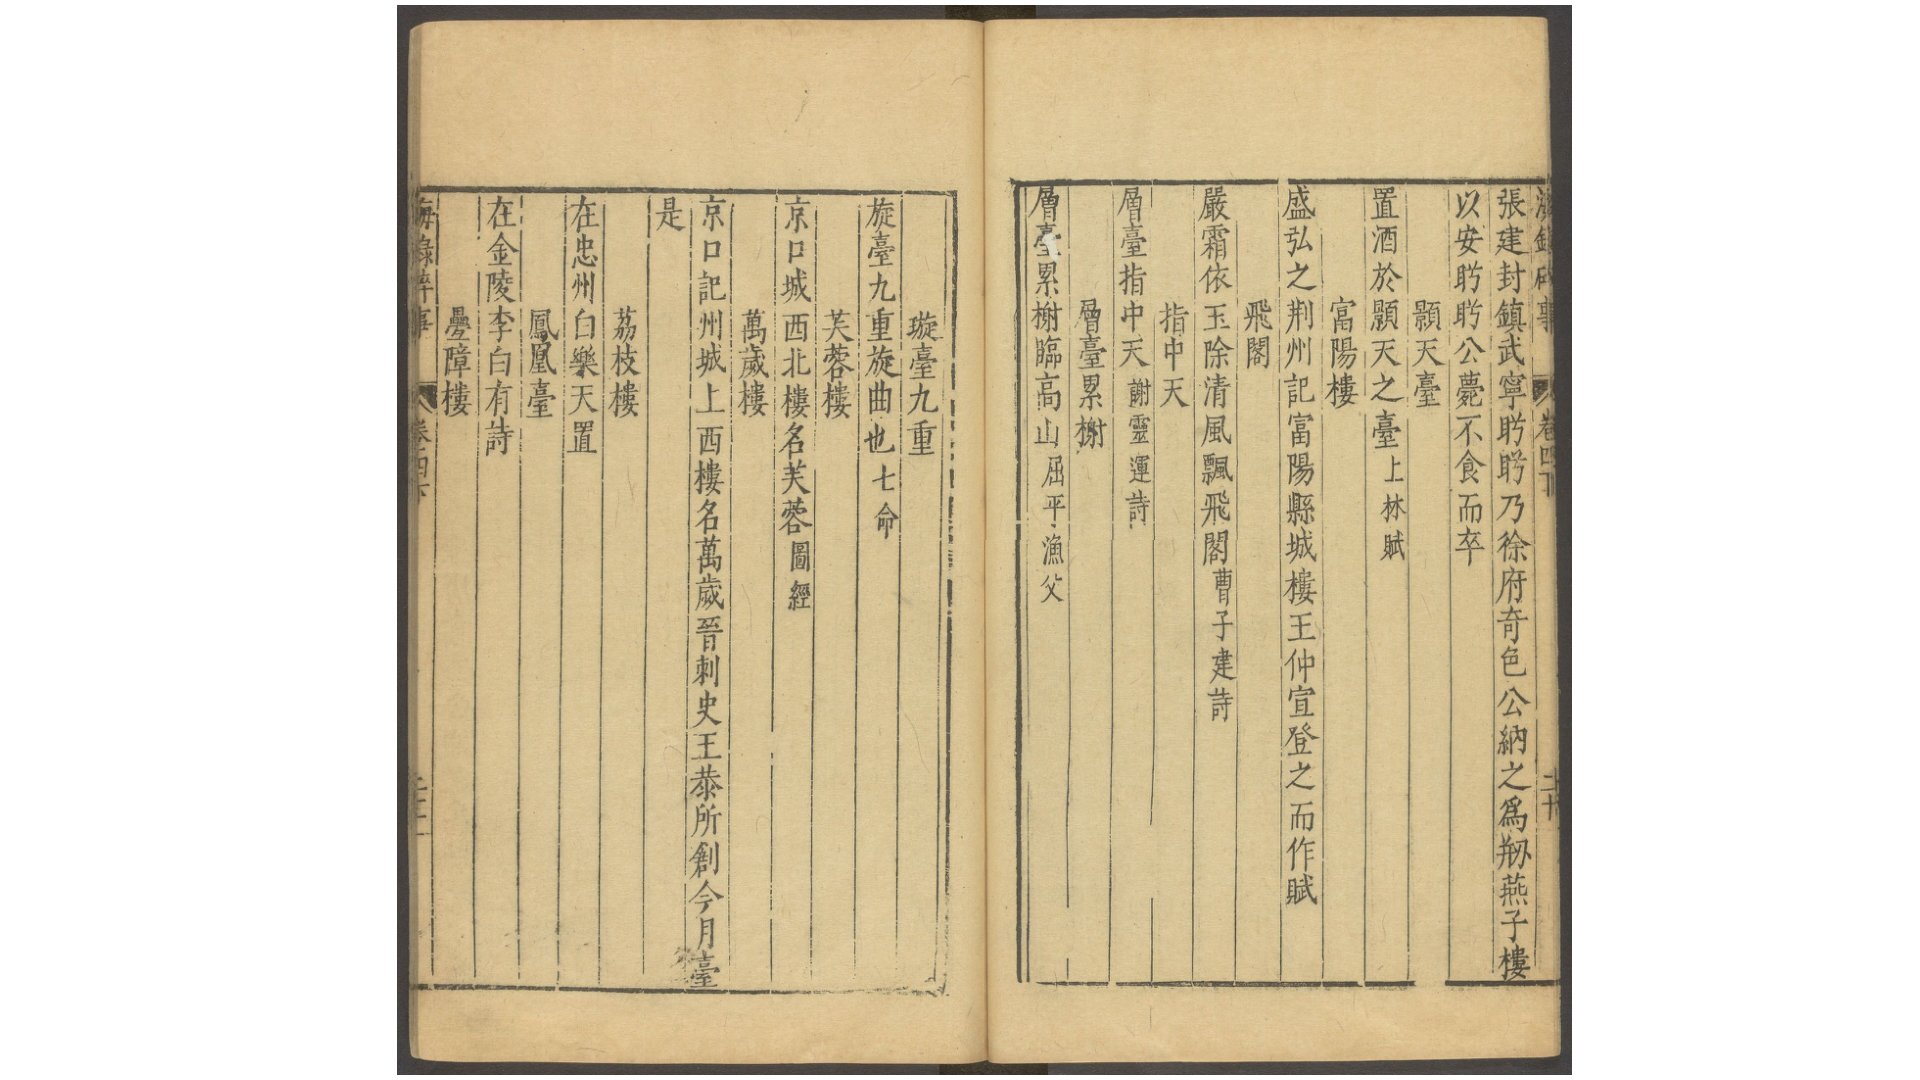 張建封鎮武寧盻盻乃徐府奇色公納之爲刱燕子樓
以安盻盻公薨不食而卒
顥天臺
置酒於顥天之臺上林賦
富陽樓
盛弘之荆州記富陽縣城樓王仲宣登之而作賦
飛閣
嚴霜依玉除清風飄飛閣曹子建詩
指中天
層臺指中天謝靈運詩
層臺累榭
層臺累榭臨高山屈平漁父
璇臺九重
旋臺九重旋曲也七命
芙蓉樓
京口城西北樓名芙蓉圖經
萬歲樓
京口記州城上西樓名萬歲晉刺史王恭所創今月臺
是
荔枝樓
在忠州白樂天置
鳳凰臺
在金陵李白有詩
疊障樓
海錄碎事 卷四下